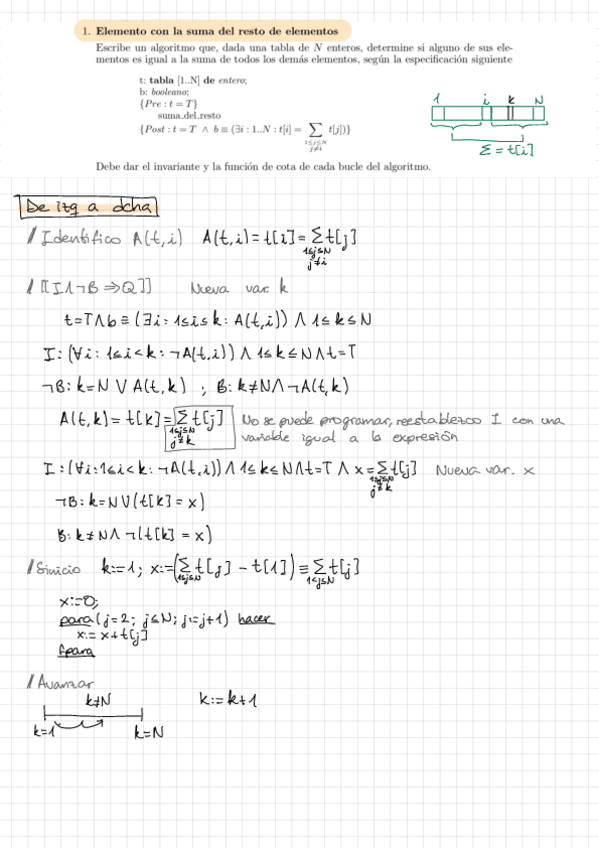 1. Elemento con la suma del resto de elementos
Escribe un algoritmo que, dada una tabla de N enteros, determine si alguno de sus ele-
mentos es igual a la suma de todos los demás elementos, según la especificación siguiente
t: tabla [1..N] de entero;
b: booleano;
{Pre : t = T}
suma_del_resto
{Post : t = T ∧ b ≡ (∃i : 1..N : t[i] = ∑ t[j])}
1≤j≤N
j≠i
1 i k N
Σ = t[i]
Debe dar el invariante y la función de cota de cada bucle del algoritmo.
De izq a dcha
/ Identifico A(t,i) A(t,i) = t[i] = Σ t[j]
1≤j≤N
j≠i
/ [[I∧¬B ⇒ Q]] Nueva var k
t=T∧b ≡ (∃i: 1≤i≤k: A(t,i)) ∧ 1≤k≤N
I: (∀i: 1≤i<k: ¬A(t,i)) ∧ 1≤k≤N ∧ t=T
¬B: k=N ∨ A(t,k) ; B: k≠N ∧ ¬A(t,k)
A(t,k) = t[k] = Σ t[j] No se puede programar, reestablezco I con una
1≤j≤N
j≠k variable igual a la expresión
I: (∀i: 1≤i<k: ¬A(t,i)) ∧ 1≤k≤N ∧ t=T ∧ x = Σ t[j] Nueva var. x
1≤j≤N
j≠k
¬B: k=N ∨ (t[k] = x)
B: k≠N ∧ ¬(t[k] = x)
/ Sinicio k:=1; x:=(Σ t[j] - t[1]) ≡ Σ t[j]
1≤j≤N 1<j≤N
x:=0;
para (j=2; j≤N; j:=j+1) hacer
x:= x+t[j]
fpara
/ Avanzar
k≠N k:=k+1
k=1 k=N